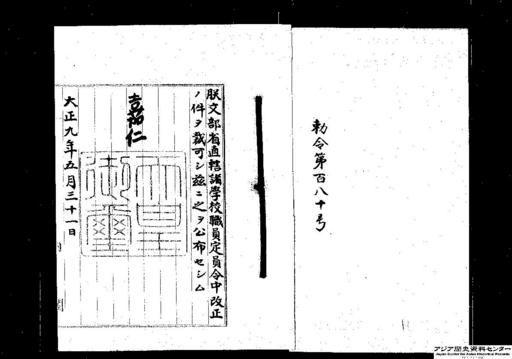 勅令第百八十号
朕文部省直轄諸学校職員定員令中改正
ノ件ヲ裁可シ茲ニ之ヲ公布セシム
嘉仁
天皇御璽
大正九年五月三十一日
アジア歴史資料センター
Japan Center for Asian Historical Records